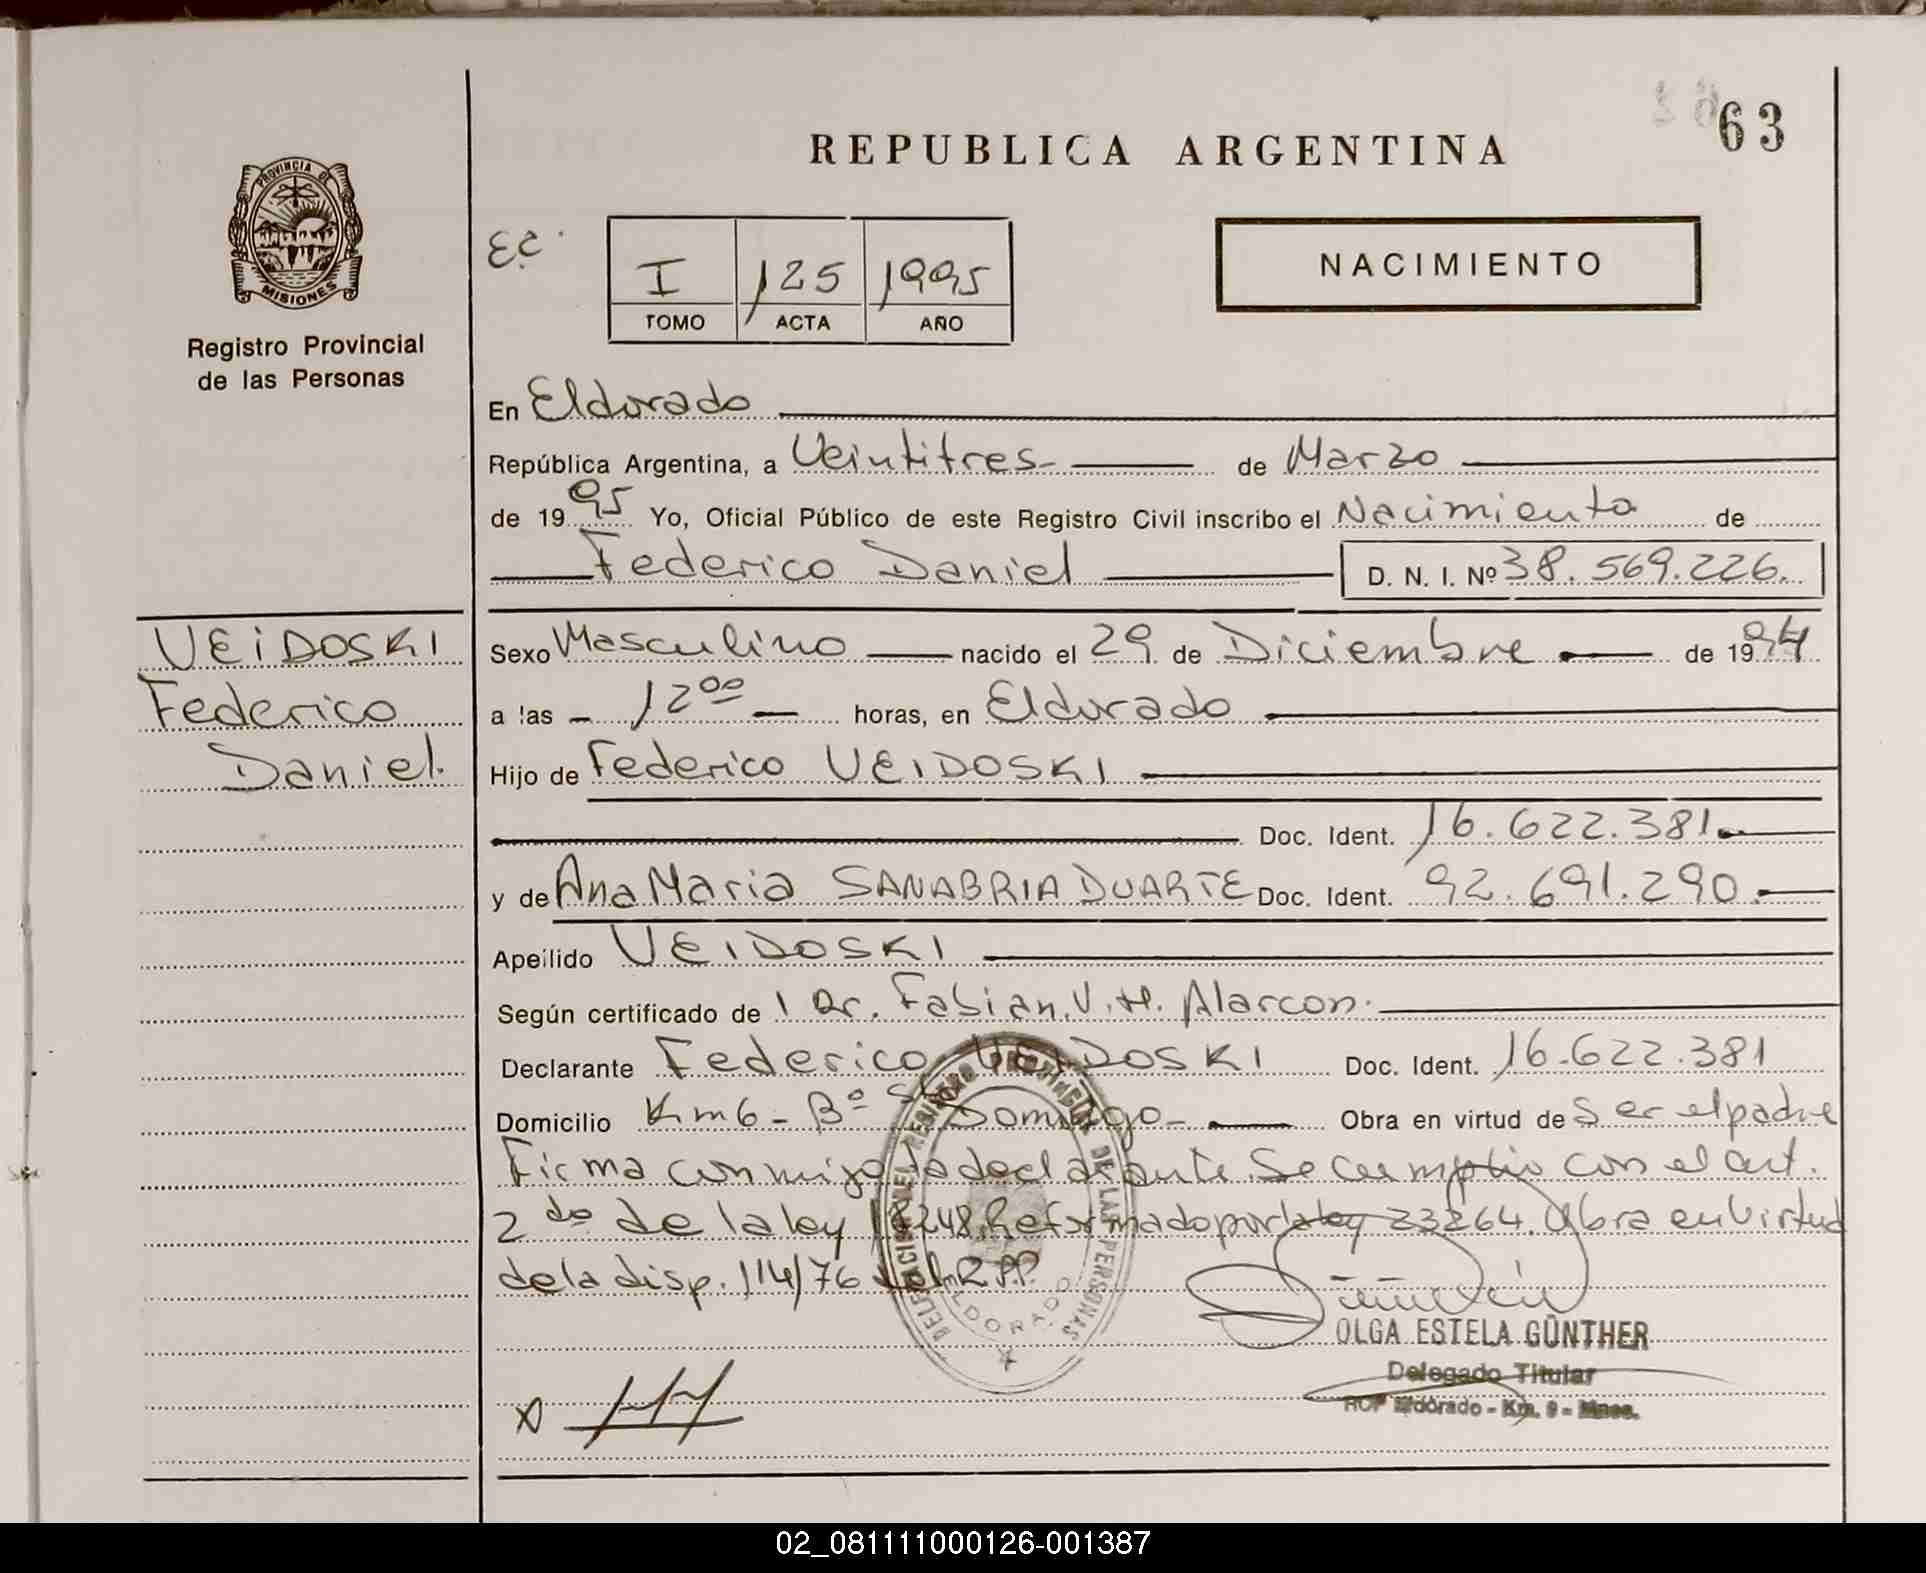 63
REPUBLICA ARGENTINA
PROVINCIA DE
MISIONES
Registro Provincial
de las Personas
I 125 1995
TOMO ACTA AÑO
NACIMIENTO
En Eldorado
República Argentina, a Veintitres de Marzo
de 1995 Yo, Oficial Público de este Registro Civil inscribo el Nacimiento de
Federico Daniel D. N. I. Nº 38.569.226.
VEIDOSKI
Federico
Daniel.
Sexo Masculino nacido el 29 de Diciembre de 1994
a las 12⁰⁰ horas, en Eldorado
Hijo de Federico VEIDOSKI
Doc. Ident. 16.622.381
y de Ana Maria SANABRIA DUARTE Doc. Ident. 92.691.290.
Apellido VEIDOSKI
Según certificado de Dr. Fabian. V. H. Alarcon.
Declarante Federico VEIDOSKI Doc. Ident. 16.622.381
Domicilio Km 6 - Bº Domingo - Obra en virtud de Ser el padre
Firma conmigo declarante. Se cumplio con el art.
2do de la ley 18248, Reformado por la ley 23264. Obra en virtud
de la disp. 114/76 del R.P.P.
DELEGACION DEL REGISTRO PROVINCIAL DE LAS PERSONAS
ELDORADO
OLGA ESTELA GÜNTHER
Delegado Titular
RCP Eldorado - Km. 9 - Mnes.
02_081111000126-001387